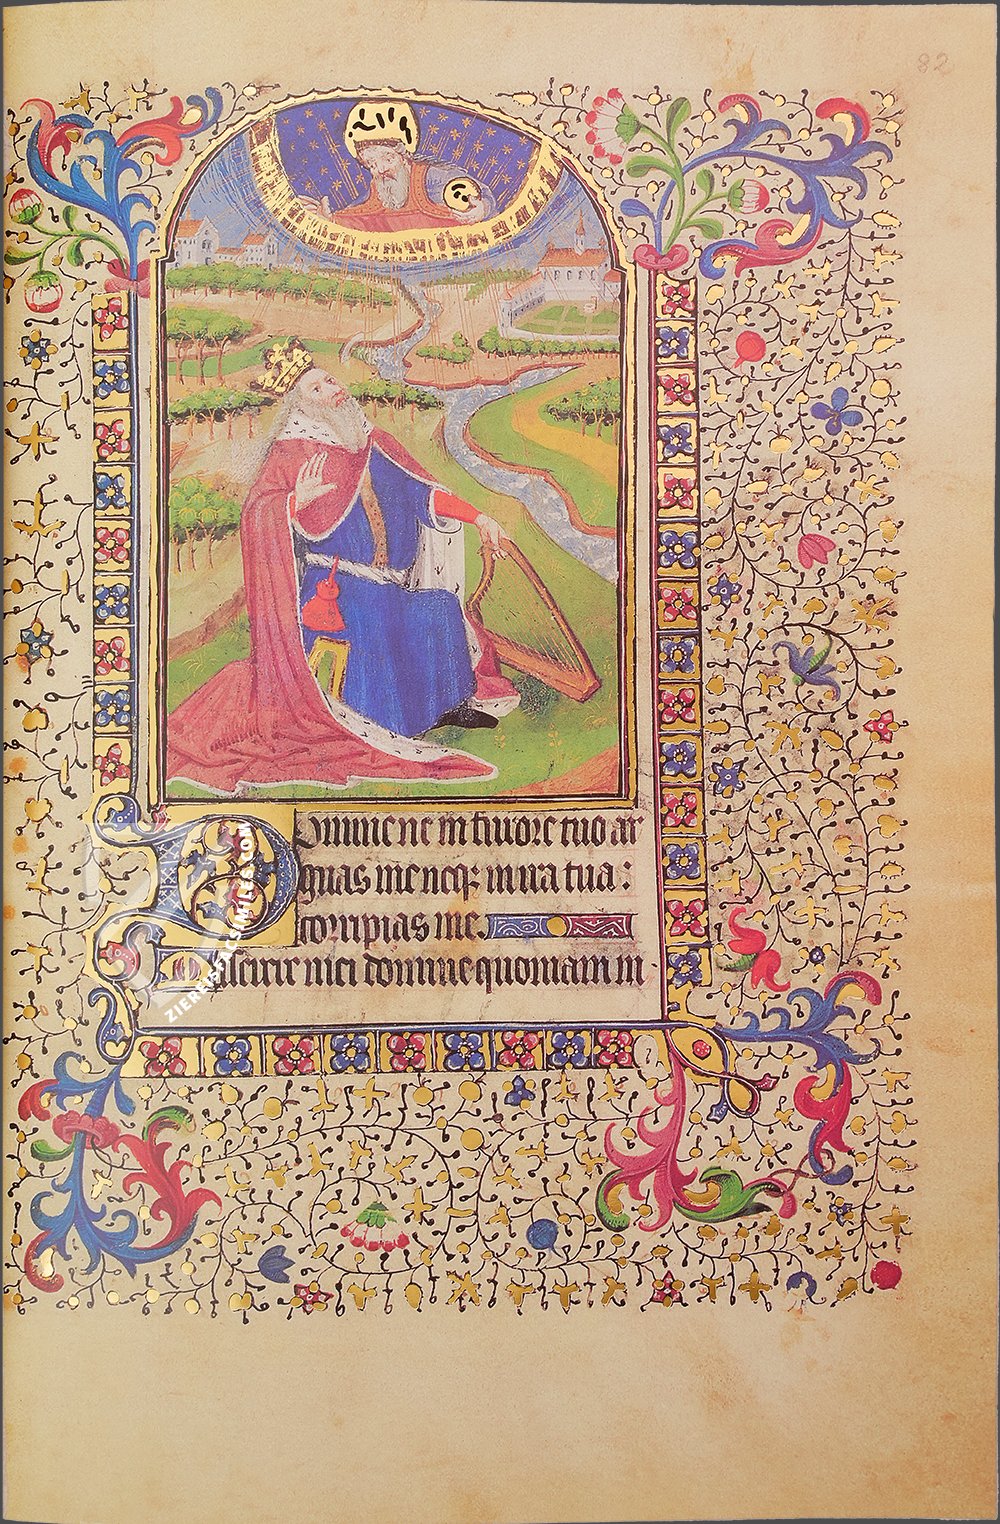 82
Domine ne in furore tuo ar
guas me neq; in ira tua:
corripias me.
Miserere mei domine quoniam in
ZIEREISFACSIMILES.COM